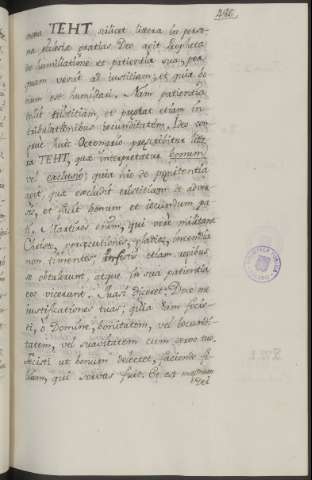 486
nona TEHT scilicet littera in perso-
na plebis gratias Deo agit Propheta
de humiliatione et patientia sua, per
quam venit ad iustitiam, et quia bo-
num est humiliari. Nam patientia
tollit tristitiam, et prestat etiam in
tribulationibus iucunditatem. Ideo con-
gue huic Octonario prescribitur litte-
ra TEHT, quæ interpretatur bonum,
vel exclusio; quia hic de penitentia
agit, quæ excludit tristitiam de adver-
sis, et facit bonum et iucundum pa-
ti. Martires enim, qui vere militant
Christo, persequutiones, plagas, incendia
non timentes, etiam regibus
se obtulerunt, atque in sua patientia
eos vicerunt. Quasi diceret: Doce me
iustificationes tuas; quia tum fecis-
ti, o Domine, bonitatem, vel iocundi-
tatem, vel suavitatem cum servo tuo.
Fecisti ut bonum delectet, faciendo fi-
liam, qui servus fuit. Et est magnum
Dei